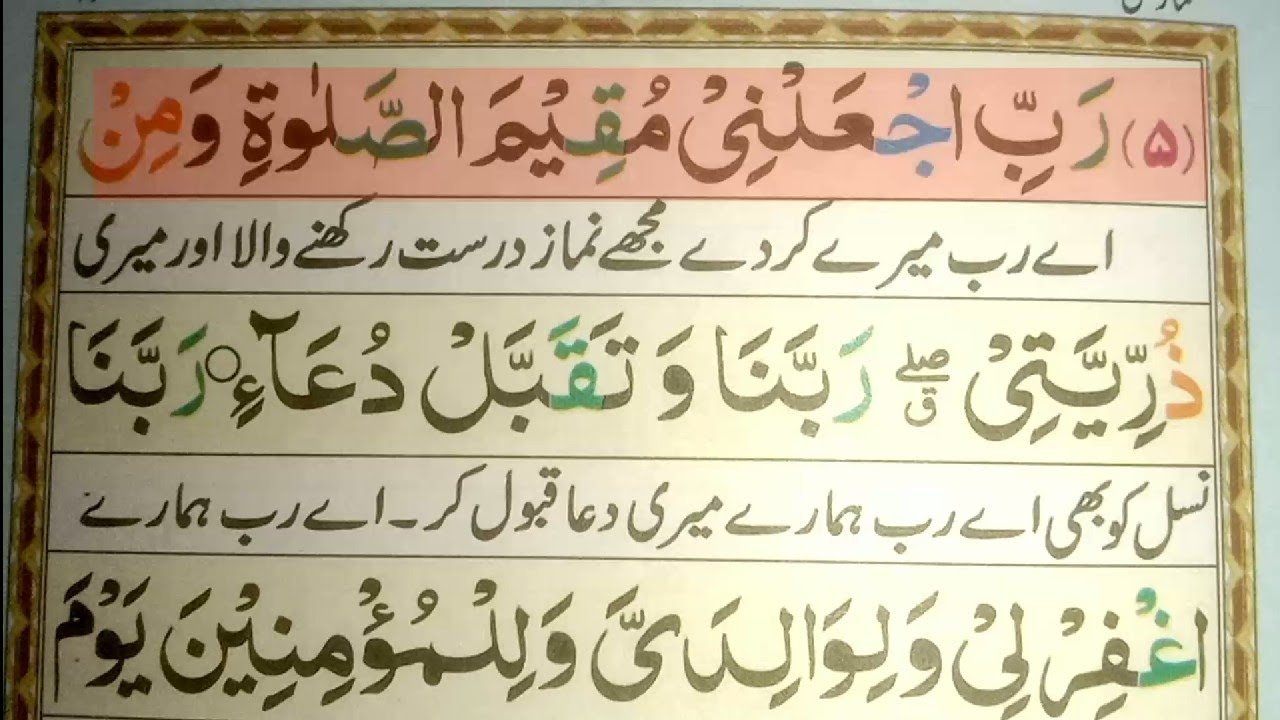 (۵) رَبِّ اجْعَلْنِیْ مُقِیْمَ الصَّلٰوةِ وَمِنْ
اے رب میرے کردے مجھے نماز درست رکھنے والا اور میری
ذُرِّیَّتِیْ صلے ق رَبَّنَا وَ تَقَبَّلْ دُعَآءِ ○ رَبَّنَا
نسل کو بھی اے رب ہمارے میری دعا قبول کر۔ اے رب ہمارے
اغْفِرْ لِیْ وَ لِوَالِدَیَّ وَ لِلْمُؤْمِنِیْنَ یَوْمَ